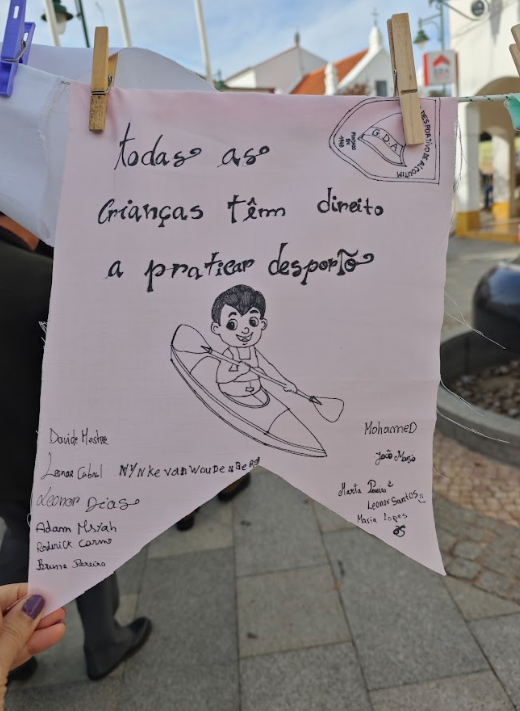 todas as
Crianças têm direito
a praticar desporto
GDA
DESPORTIVO DE ALCOUTIM
Davide Mestre
Leonor Cabral
Nynke van Woudenberg
Leonor Dias
Adam Msyah
Roderick Carmo
Bruno Pereira
Mohamed
João Maria
Marta
Leonor Santos
Maria Lopes